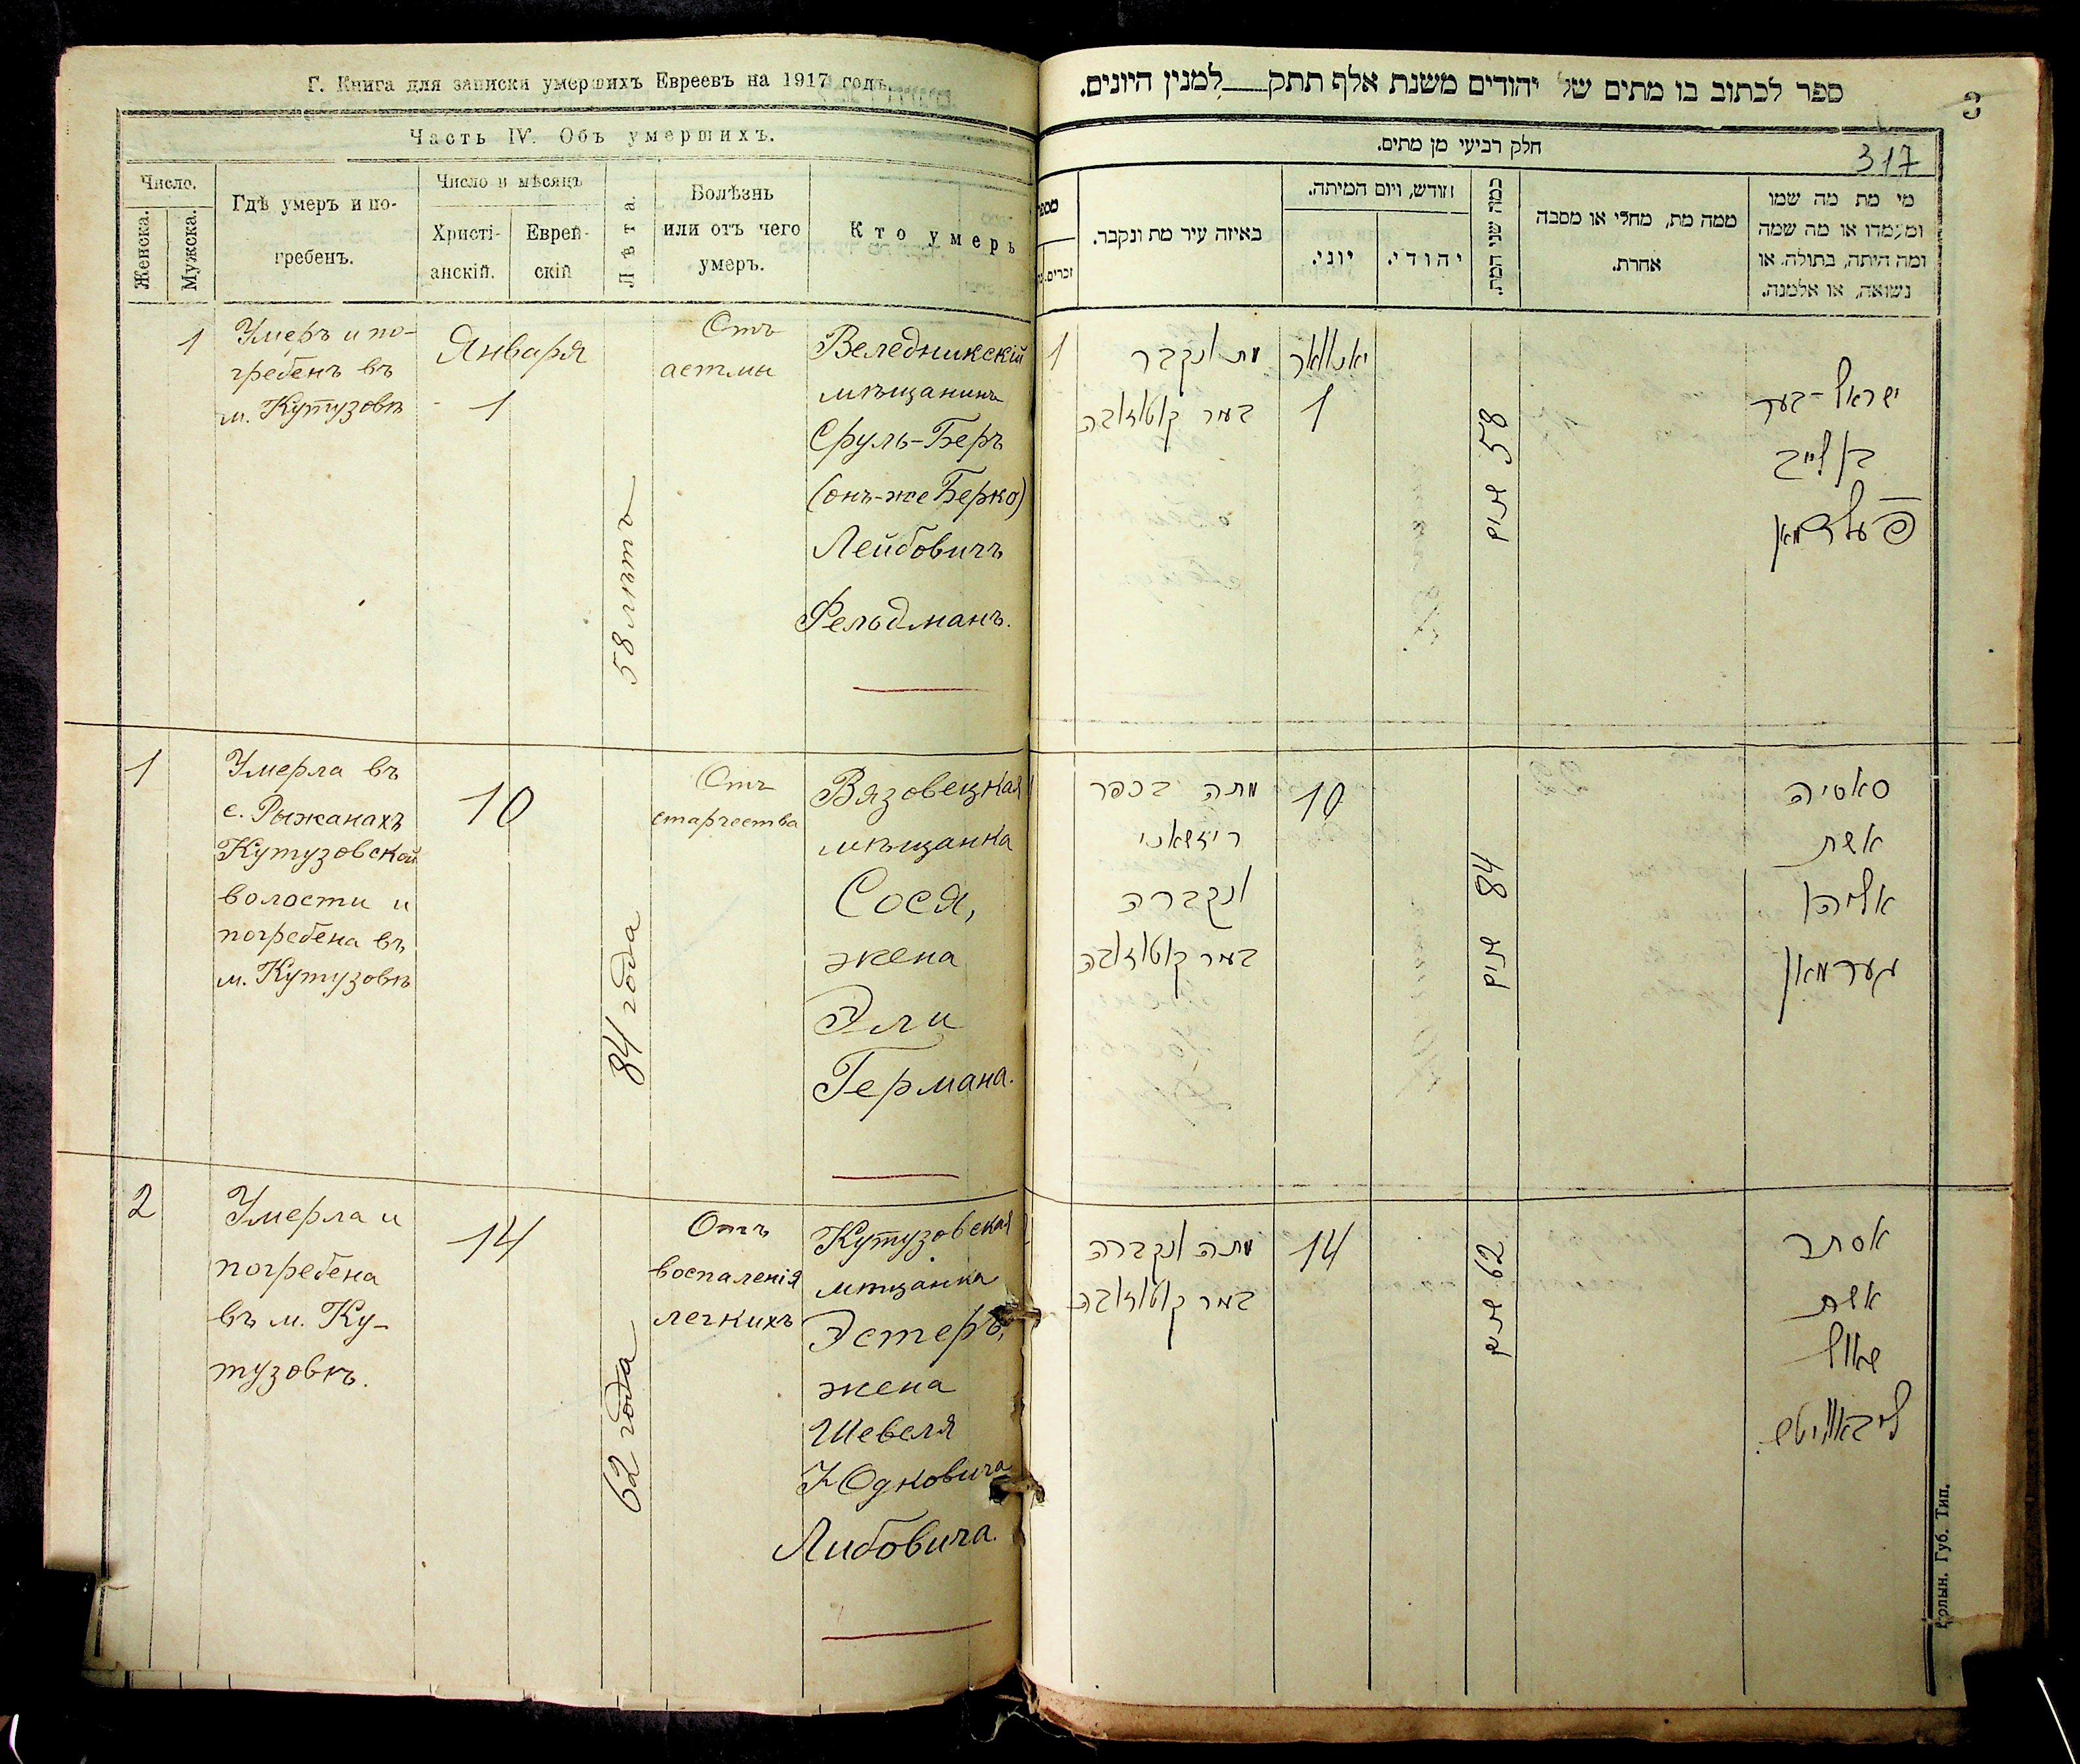 Г. Книга для записки умершихъ Евреевъ на 1917 годъ
Часть IV. Объ умершихъ.
Число.
Женска.
Мужска.
Гдѣ умеръ и по-
гребенъ.
Число и мѣсяцъ
Христі-
анскій.
Еврей-
скій
Лѣта.
Болѣзнь
или отъ чего
умеръ.
Кто умеръ
1
Умеръ и по-
гребенъ въ
м. Кутузовѣ
Января
1
58 лѣтъ
Отъ
астмы
Веледникскій
мѣщанинъ
Сруль-Беръ
(онъ-же Берко)
Лейбовичъ
Фельдманъ.
1
Умерла въ
с. Рыжанахъ
Кутузовской
волости и
погребена въ
м. Кутузовѣ
10
84 года
Отъ
старчества
Вязовецкая
мѣщанка
Сося,
жена
Эли
Германа.
2
Умерла и
погребена
въ м. Ку-
тузовѣ.
14
62 года
Отъ
воспаленія
легкихъ
Кутузовская
мѣщанка
Эстеръ,
жена
Шевеля
Юдковича
Либовича.
ספר לכתוב בו מתים של יהודים משנת אלף תתק למנין היונים.
3
חלק רביעי מן מתים.
317
מי מת מה שמו
ומעמדו או מה שמה
ומה היתה, בתולה, או
נשואה, או אלמנה.
ממה מת, מחלי או מסבה
אחרת.
כמה שני המת.
חודש, ויום המיתה.
יהודי.
יוני.
באיזה עיר מת ונקבר.
מספר
זכרים.
ישראל-בער
בן לייב
פעלדמאן
58 שנים
יאנוואר
1
מת ונקבר
בעיר קוטוזובה
1
סאסיה
אשת
אליהו
גערמאן
84 שנים
10
מתה בכפר
ריזשאני
ונקברה
בעיר קוטוזובה
אסתר
אשת
שאול
ליבאוויטש.
62 שנים
14
מתה ונקברה
בעיר קוטוזובה
Волын. Губ. Тип.